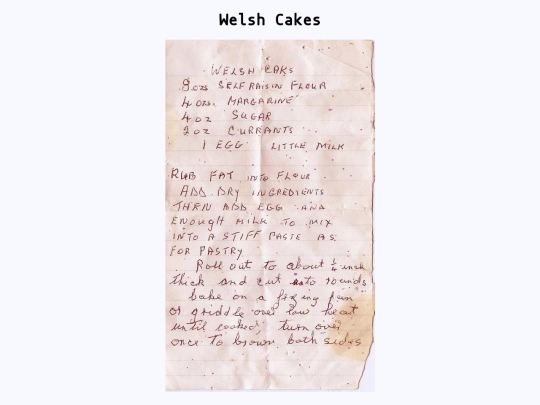 Welsh Cakes
WELSH CAKS
8 ozs SELF RAISIN FLOUR
4 ozs. MARGARINE
4 oz SUGAR
2 oz CURRANTS
1 EGG LITTLE MILK
RUB FAT INTO FLOUR
ADD DRY INGREDIENTS
THEN ADD EGG AND
ENOUGH MILK TO MIX
INTO A STIFF PASTE AS
FOR PASTRY
Roll out to about ¼ inch
thick and cut into rounds
bake on a frying pan
or griddle over low heat
until cooked, turn over
once to brown both sides